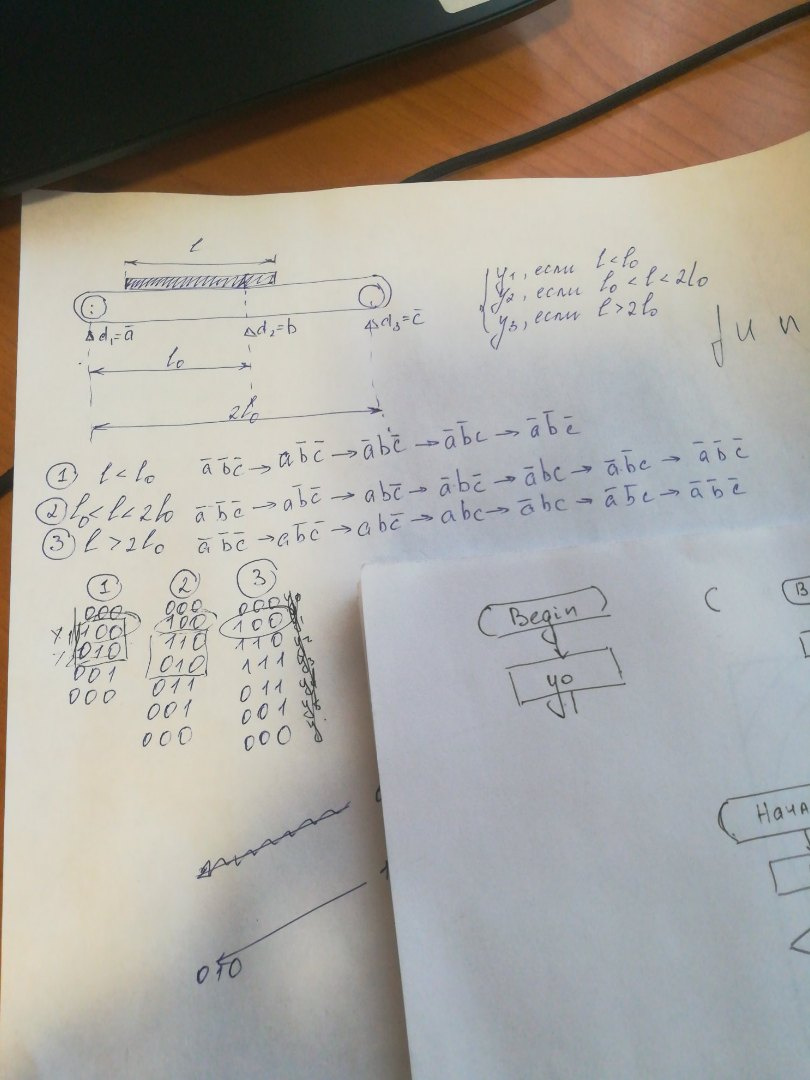 l
d₁=ā
d₂=b
d₃=c̄
l₀
2l₀
y₁, если l<l₀
y₂, если l₀<l<2l₀
y₃, если l>2l₀
① l<l₀ āb̄c̄→ab̄c̄→ābc̄→āb̄c→āb̄c̄
② l₀<l<2l₀ āb̄c̄→ab̄c̄→abc̄→ābc̄→ābc→āb̄c→āb̄c̄
③ l>2l₀ āb̄c̄→ab̄c̄→abc̄→abc→ābc→āb̄c→āb̄c̄
① ② ③
000 000 000
100 100 100
010 110 110
001 010 111
000 011 011
001 001
000 000
010
Begin
y0
C
B
Нача